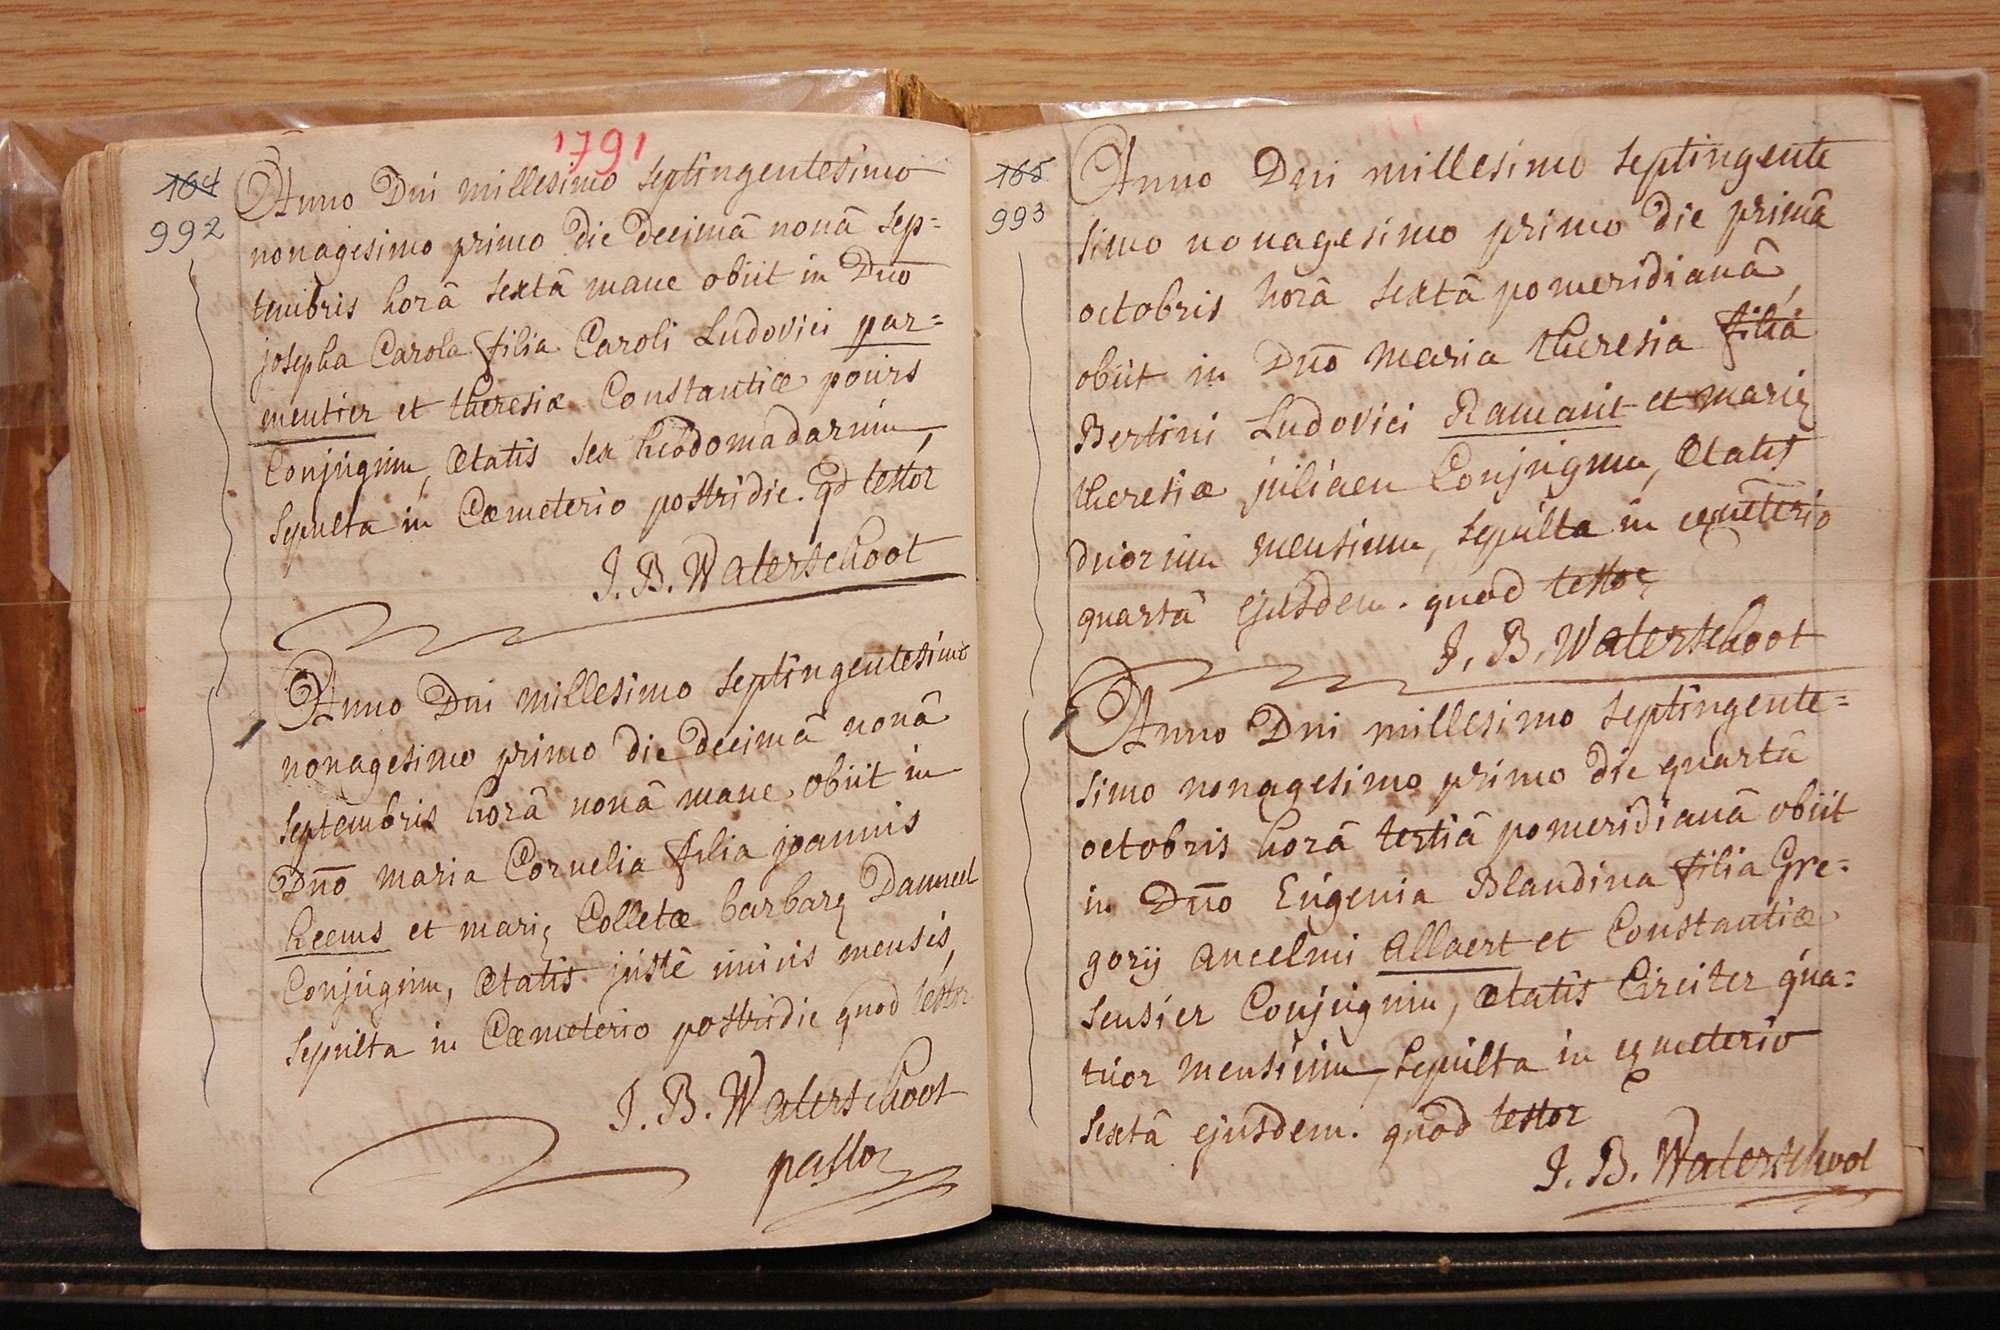 1791
164
992
Anno Dni millesimo septingentesimo
nonagesimo primo die decimâ nonâ sep=
tembris horâ sextâ mane obiit in Dno
josepha Carola filia Caroli Ludovici par=
mentier et theresiæ Constantiæ pours
Conjugum, ætatis sex hebdomadarum,
sepulta in Cœmeterio postridie. qd testor
J. B. Waterschoot
Anno Dni millesimo septingentesimo
nonagesimo primo die decimâ nonâ
septembris horâ nonâ mane obiit in
Dno maria Cornelia filia joannis
heems et marię Colletæ barbarę Dauwel
Conjugum, ætatis justè unius mensis,
sepulta in Cœmeterio postridie quod testor
J. B. Waterschoot
pastor
165
993
Anno Dni millesimo septingente
simo nonagesimo primo die primâ
octobris horâ sextâ pomeridianâ,
obiit in Dno maria theresia filia
Bertini Ludovici Ramaut et marię
theresiæ juliaen Conjugum, ætatis
duorum mensium, sepulta in cęmeterio
quartâ ejusdem. quod testor
J. B. Waterschoot
Anno Dni millesimo septingente=
simo nonagesimo primo die quartâ
octobris horâ tertiâ pomeridianâ obiit
in Dno Eugenia Blandina filia Gre=
gorij ancelmi allaert et Constantiæ
sensier Conjugum, ætatis Circiter qua=
tuor mensium, sepulta in cęmeterio
sextâ ejusdem. quod testor
J. B. Waterschoot